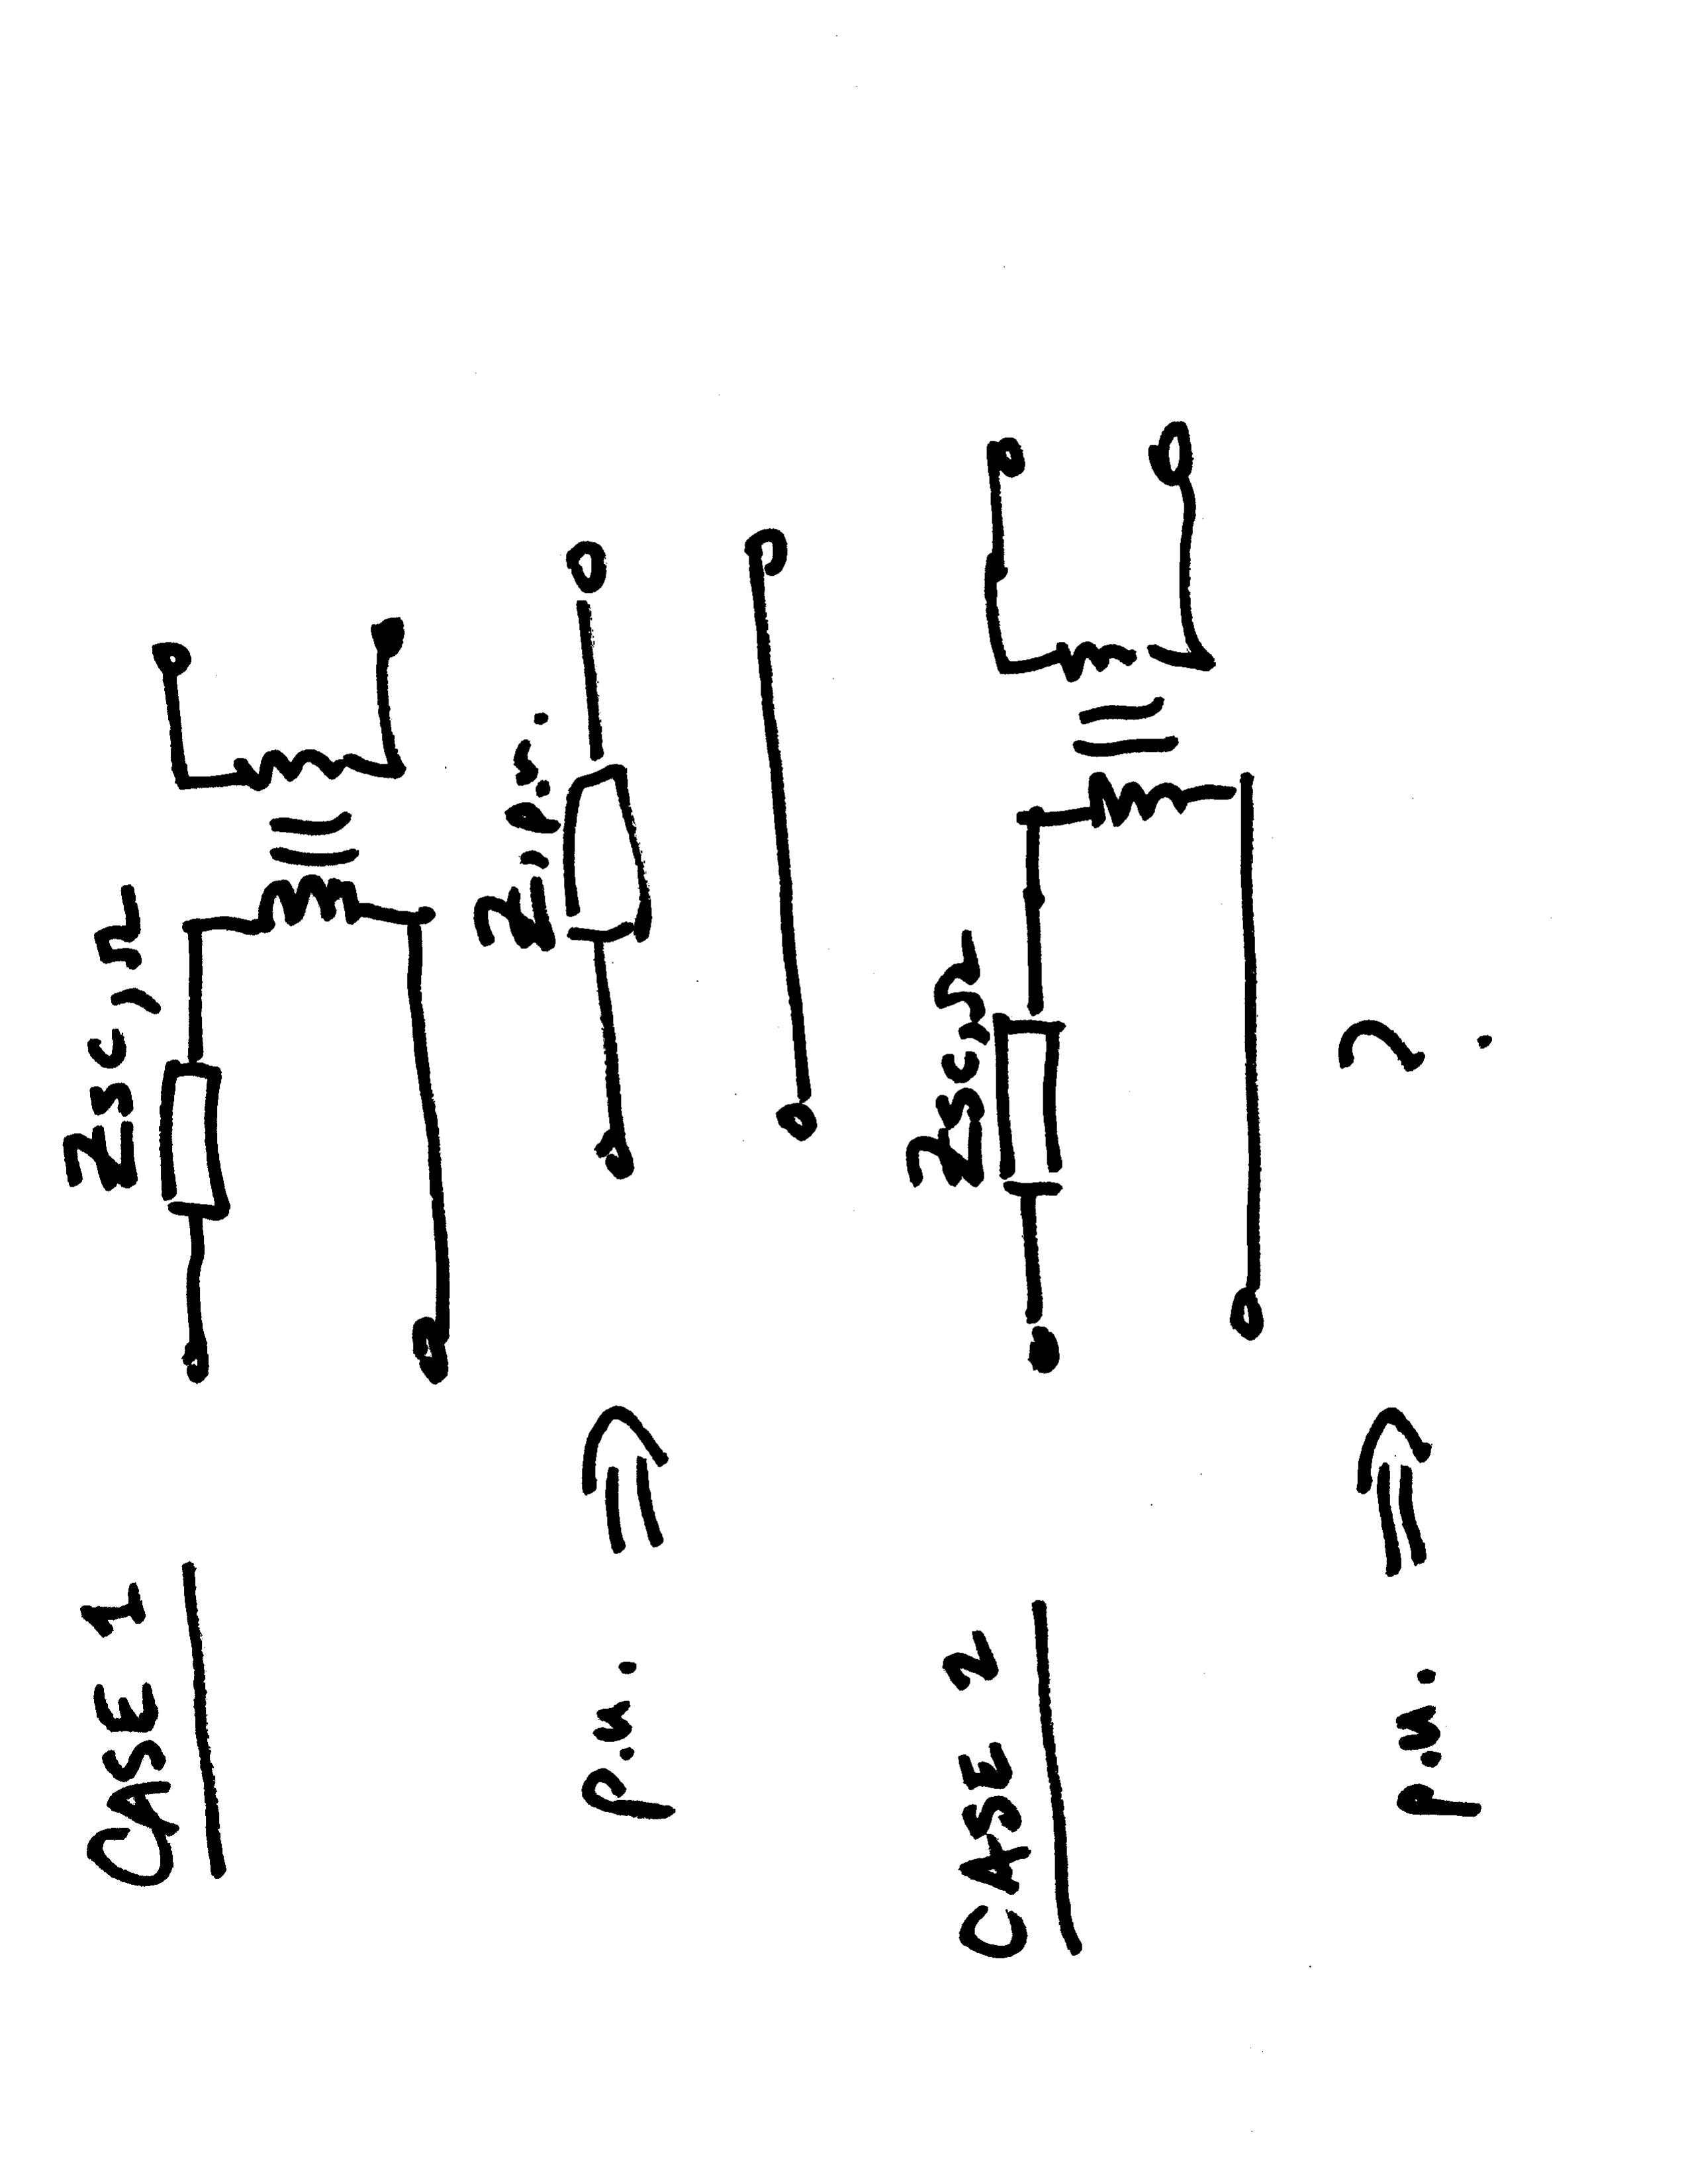 CASE 1
Zsc,Ω
p.u. ⇒
Z,p.u.
CASE 2
Zsc,Ω
p.u. ⇒
?